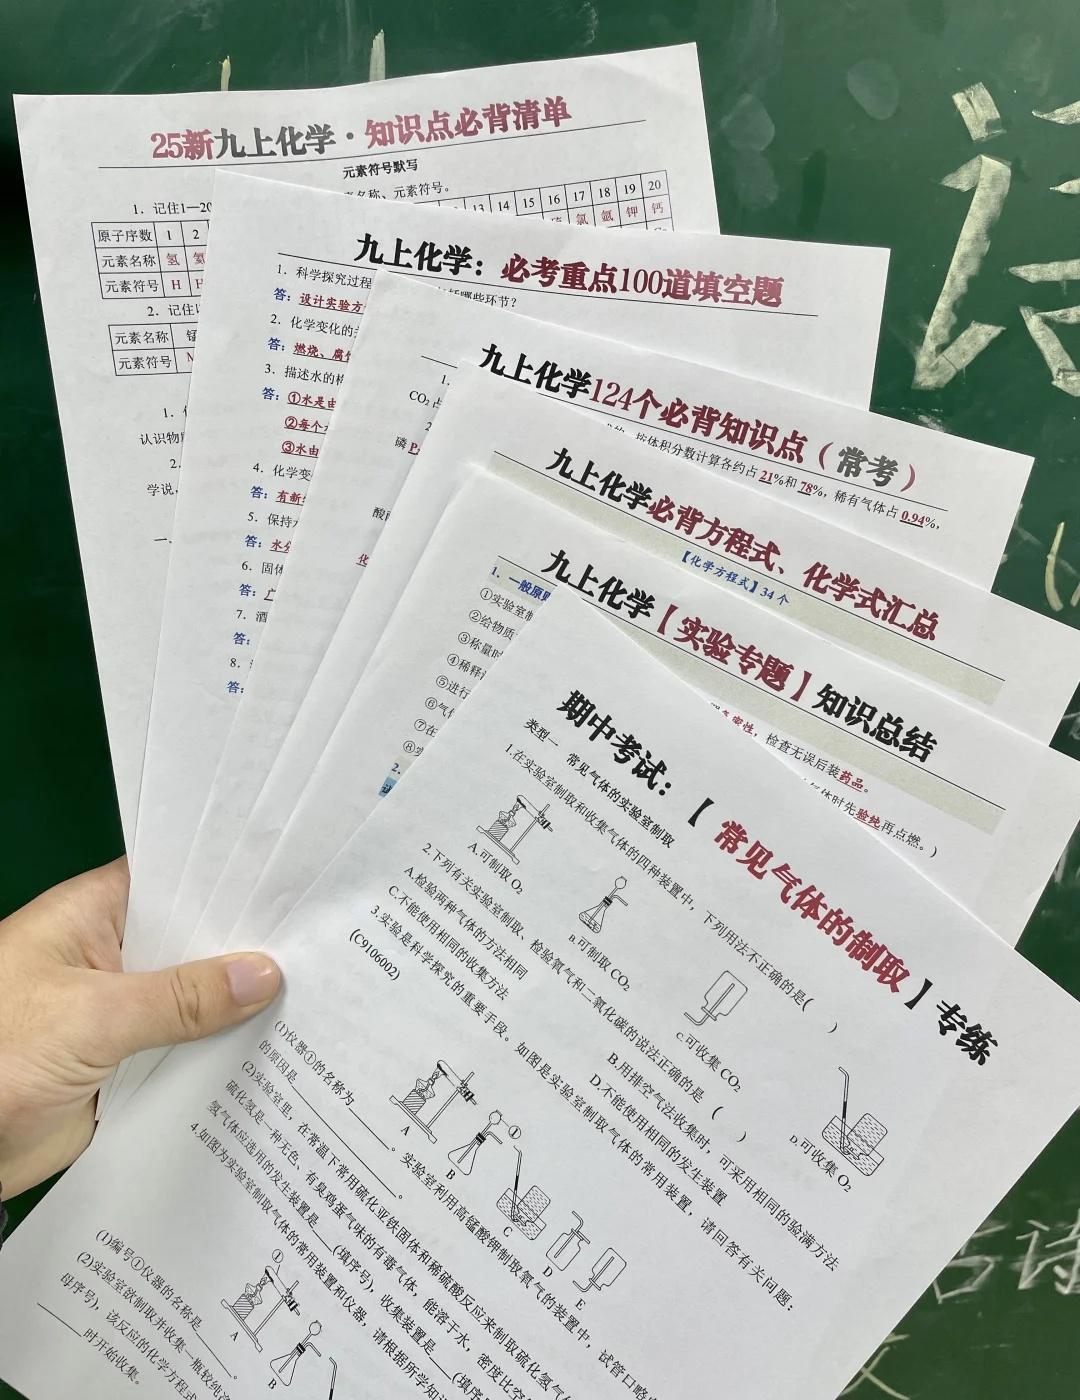 25新九上化学·知识点必背清单
元素符号默写
1. 记住1—20
名称、元素符号。
原子序数 1 2 13 14 15 16 17 18 19 20
元素名称 氢 氦 氯 氩 钾 钙
元素符号 H
2. 记住
元素名称 锰
元素符号
1.
认识物
2.
学说,
一
九上化学:必考重点100道填空题
1. 科学探究过程 哪些环节?
答:设计实验方
2. 化学变化的
答:燃烧、腐
3. 描述水的
答:①水是由
②每个
③水由
4. 化学变
答:有新
5. 保持
答:水分
6. 固体
答:
7. 酒
答:
8.
答:
九上化学124个必背知识点(常考)
1.
按体积分数计算各约占21%和78%,稀有气体占0.94%,
CO₂占
2
磷
九上化学必背方程式、化学式汇总
【化学方程式】34个
九上化学【实验专题】知识总结
1. 一般原则
①实验室制
②给物质
③称量时
④稀释
⑤进行
⑥气体
⑦在
⑧实
2.
气密性,检查无误后装药品。
体时先验纯再点燃。)
期中考试:【常见气体的制取】专练
类型一 常见气体的实验室制取
1.在实验室制取和收集气体的四种装置中,下列用法不正确的是( )
A.可制取O₂
B.可制取CO₂
C.可收集CO₂
D.可收集O₂
2.下列有关实验室制取、检验氧气和二氧化碳的说法正确的是( )
A.检验两种气体的方法相同
B.用排空气法收集时,可采用相同的验满方法
C.不能使用相同的收集方法
D.不能使用相同的发生装置
3.实验是科学探究的重要手段。如图是实验室制取气体的常用装置,请回答有关问题:
(C9106002)
①
A
B
C
D
E
(1)仪器①的名称为______。实验室利用高锰酸钾制取氧气的装置中,试管口略
的原因是______。
(2)实验室里,在常温下常用硫化亚铁固体和稀硫酸反应来制取硫化氢气
硫化氢是一种无色、有臭鸡蛋气味的有毒气体,能溶于水,密度比空
氢气体应选用的发生装置是____(填序号),收集装置是____(填序
4.如图为实验室制取气体的常用装置和仪器,请根据所学知
①
A
B
(1)编号①仪器的名称是______。
(2)实验室欲制取并收集一瓶较纯
母序号),该反应的化学方程式
______时开始收集。